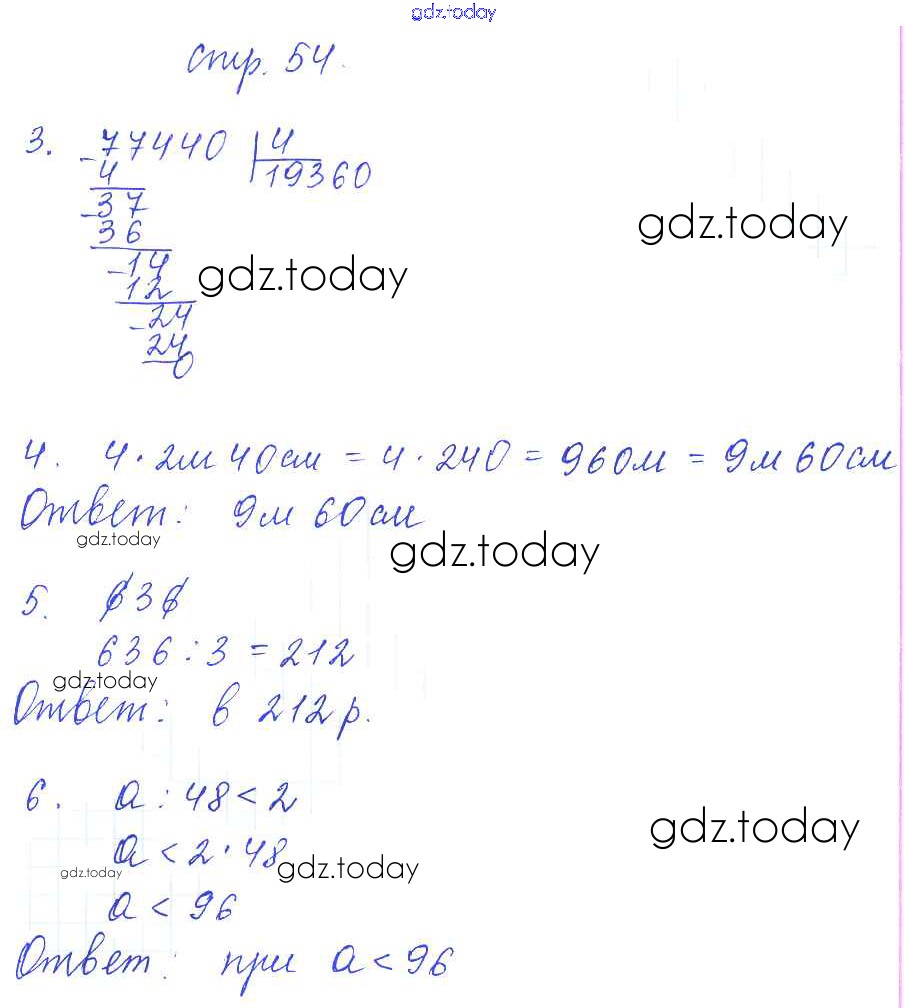 gdz.today
стр. 54.
3. -77440 | 4
4 19360
-37
36
gdz.today
-14
gdz.today
12
-24
24
0
4. 4 · 2м 40см = 4 · 240 = 960м = 9м 60см
Ответ: 9м 60см
gdz.today
gdz.today
5. 636
636 : 3 = 212
gdz.today
Ответ: в 212 р.
6. a : 48 < 2
gdz.today
a < 2 · 48
gdz.today
gdz.today
a < 96
Ответ: при a < 96